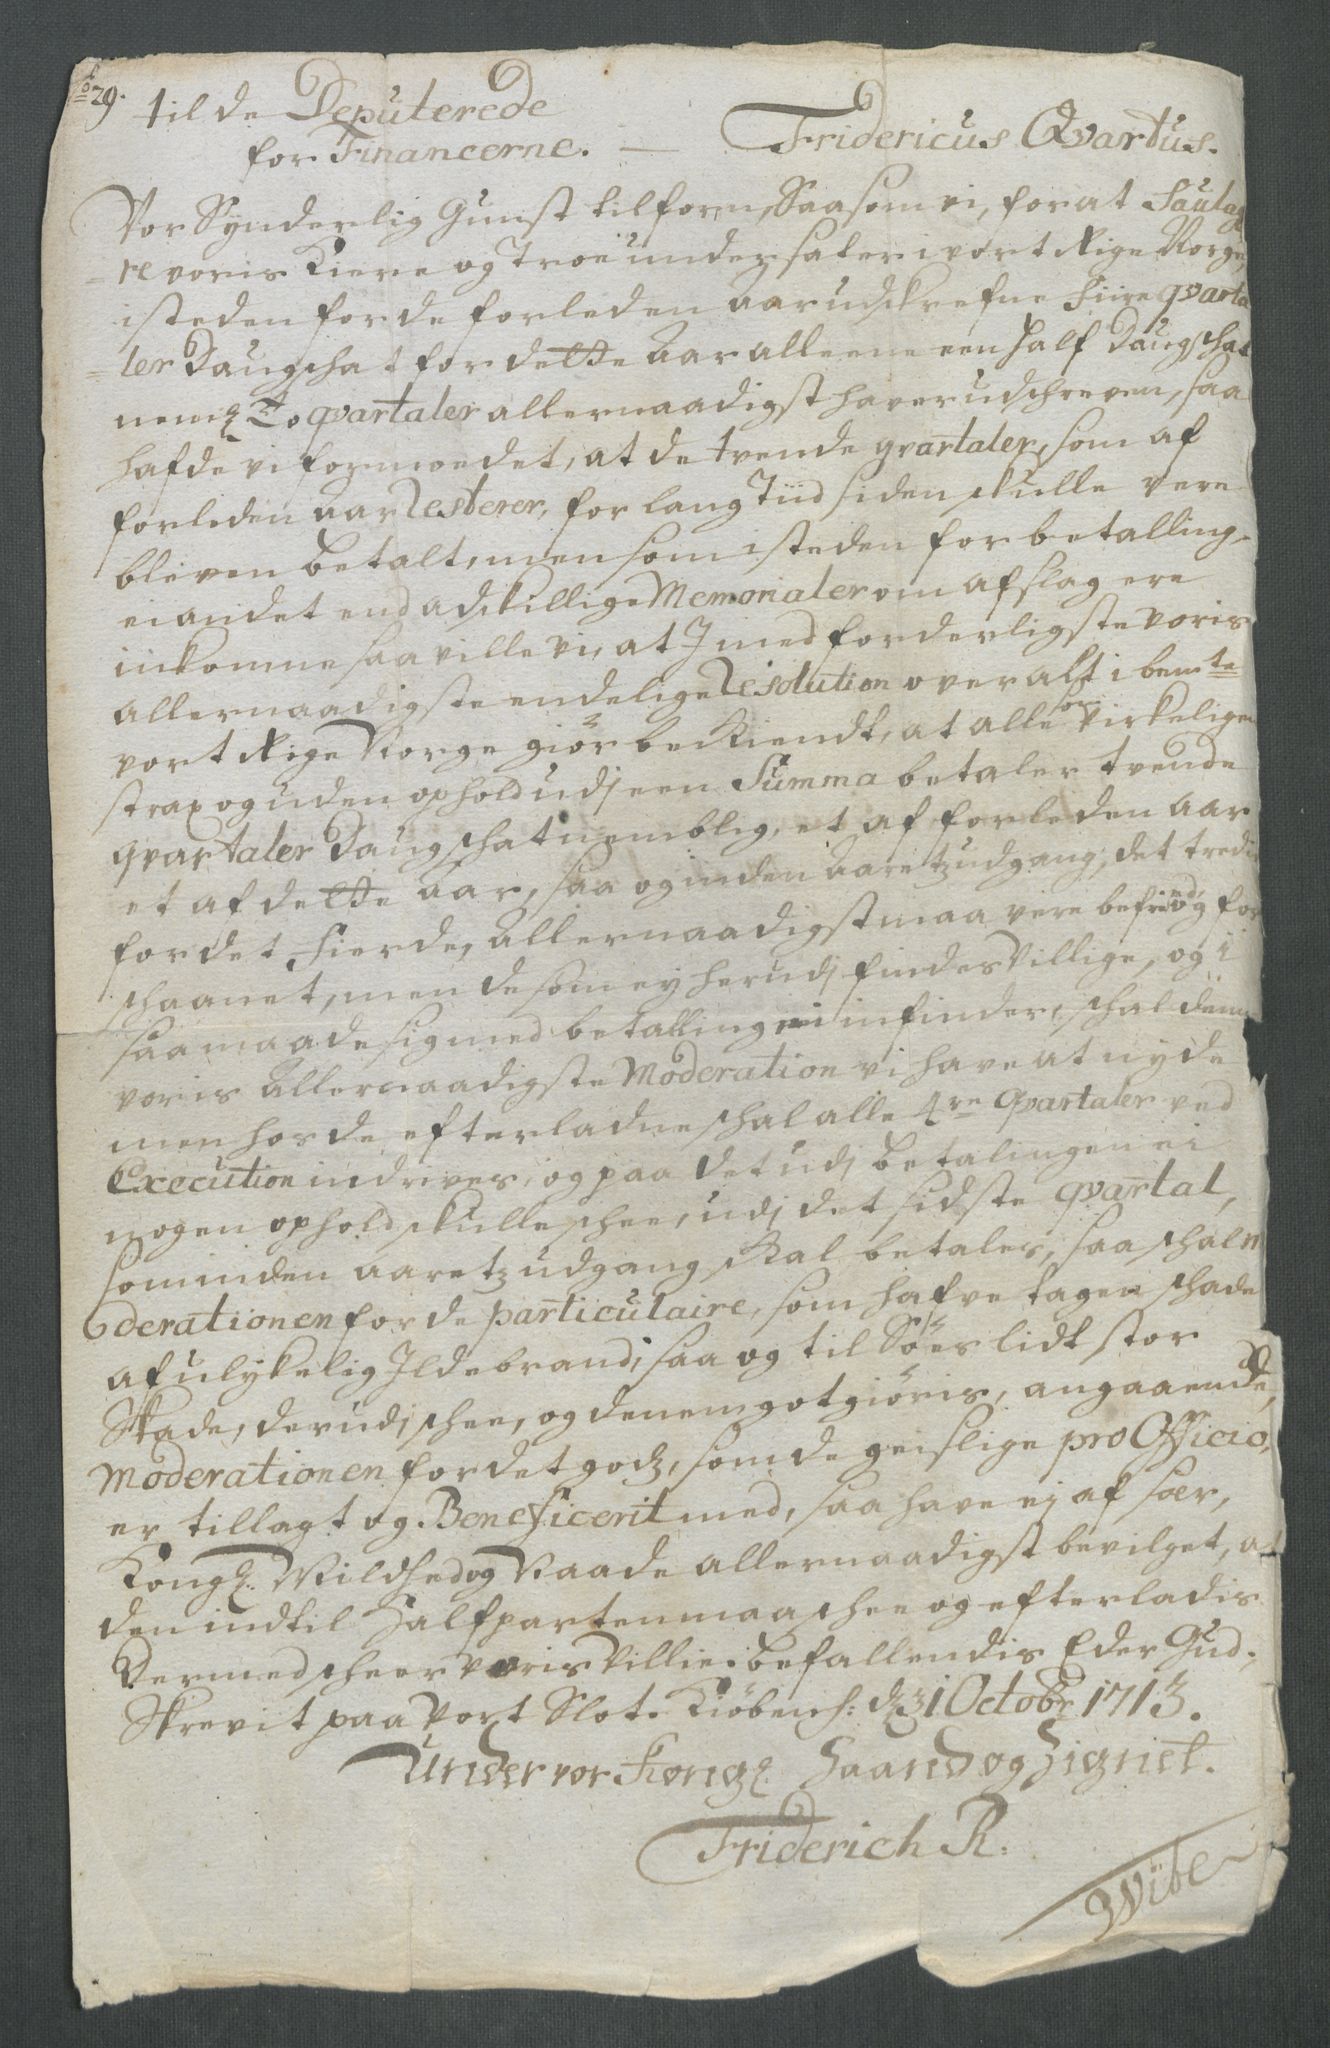 No 29. til de Deputerede
for Financerne. — Fridericus Qvartus.
Vor Synderlig Gunst tilforn, Saasom vi, for at Saulage
re voris kiere og Troe undersater i vort Rige Norge,
isteden for de forleden Aar udskrefne fiire qvarta
ler Daugschat for dette Aar alleene een half Daugschat
neml To qvartaler allernaadigst haver udschreven, saa
hafde vi formoedet, at de tvende qvartaler, som af
forleden aar Resterer, for lang Tiid siden skulle vere
bleven betalt, men som isteden for betalling
ei andet end adskillige Memorialer om afslag ere
inkomne saa ville vi, at I med forderligste voris
allernaadigste endelige Resolution overalt i bemte
vort Rige Norge giör beckiendt, at alle som virkeligen
strax og uden ophold udj een Summa betaler tvende
qvartaler Daugschat nemblig, et af forleden aar
et af dette aar, saa og inden aaretz udgang, det tredie
for det fierde, allernaadigst maa vere befried, og for
schaanet, men de som ey herudj findes villige, og i
saa maade sig med betalling ei infinder, schal denne
voris Allernaadigste Moderation vi have at nyde
men hos de efterladne schal alle 4re qvartaler ved
Execution indrives, og paa det udj betalingen ei
nogen ophold skulle schee, udj det sidste qvartal,
som inden aaretz udgang skal betales, saa schal M
oderationen for de particulaire, som hafve tagen schade
af ulykelig Ildebrand, saa og til Söes lidt stor
Skade, derudj schee, og denem gotgiöris, angaaende
Moderationen for det godz, som de geislige pro Officio,
er tillagt og Beneficerit med, saa have vj af sær,
Kongl. Mildhed og Naade allernaadigst bevilget, at
den indtil Halfparten maa schee og efterladis
Dermed scheer voris Villie. befallendis Eder Gud.
Skrevit paa Vort Slot. Kiöbenh: d. 31 Octobr 1713.
Under vor Kongl. Haand og Zignet.
Friderich R.
Wibe